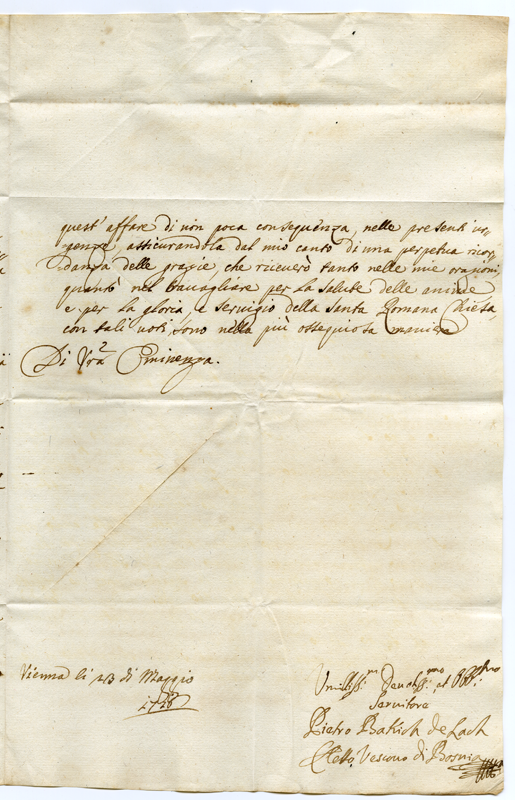 quest' affare di non poca conseguenza, nelle presenti ur,
genze assicurandola dal mio canto di una perpetua ricor,
danza delle grazie, che riceverò tanto nelle mie orazioni,
quanto nel travagliare per la salute delle anime
e per la gloria e servigio della Santa Romana Chiesa,
con tali voti sono nella più ossequiosa maniera
Di Vra Eminenza.
Vienna li 23 di Maggio
Umilissmo Devotissmo et
Servitore
Pietro Bakich de Lach
Eletto Vescovo di Bosnia